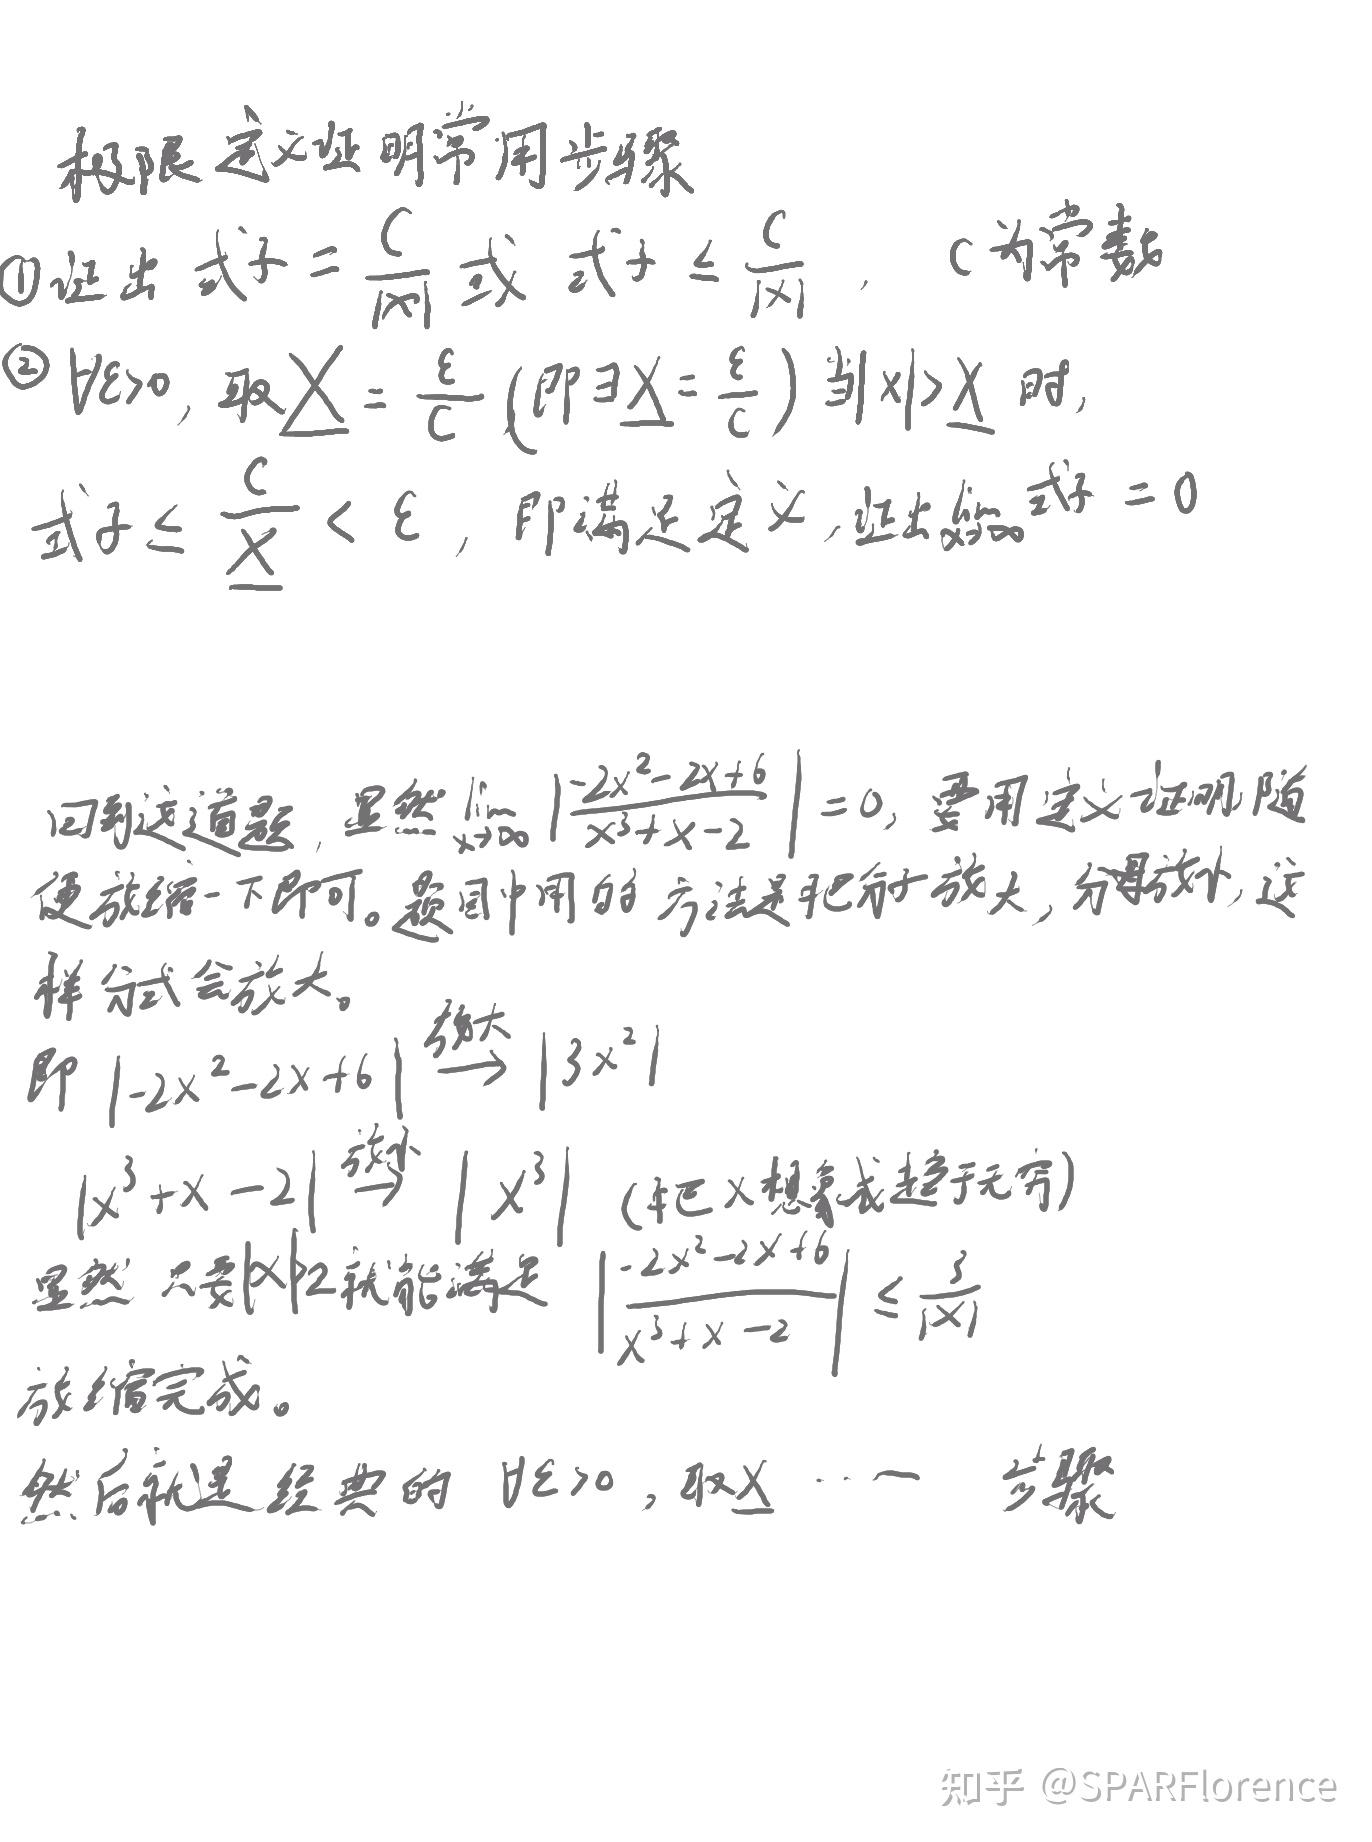 极限定义证明常用步骤
①证出 式子 = C/|x| 或 式子 ≤ C/|x| , C为常数
② ∀ε>0, 取X = ε/C (即∃X = ε/C) 当|x|>X 时,
式子 ≤ C/X < ε, 即满足定义, 证出 lim x→∞ 式子 = 0
回到这道题, 显然 lim x→∞ |(-2x²-2x+6)/(x³+x-2)| = 0, 要用定义证明随
便放缩一下即可。题目中用的方法是把分子放大, 分母放小, 这
样分式会放大。
即 |-2x²-2x+6| 放大→ |3x²|
|x³+x-2| 放小→ |x³| (把x想象成趋于无穷)
显然 只要|x|>2就能满足 |(-2x²-2x+6)/(x³+x-2)| ≤ 3/|x|
放缩完成。
然后就是经典的 ∀ε>0, 取X ⋯⋯ 步骤
知乎 @SPARFlorence